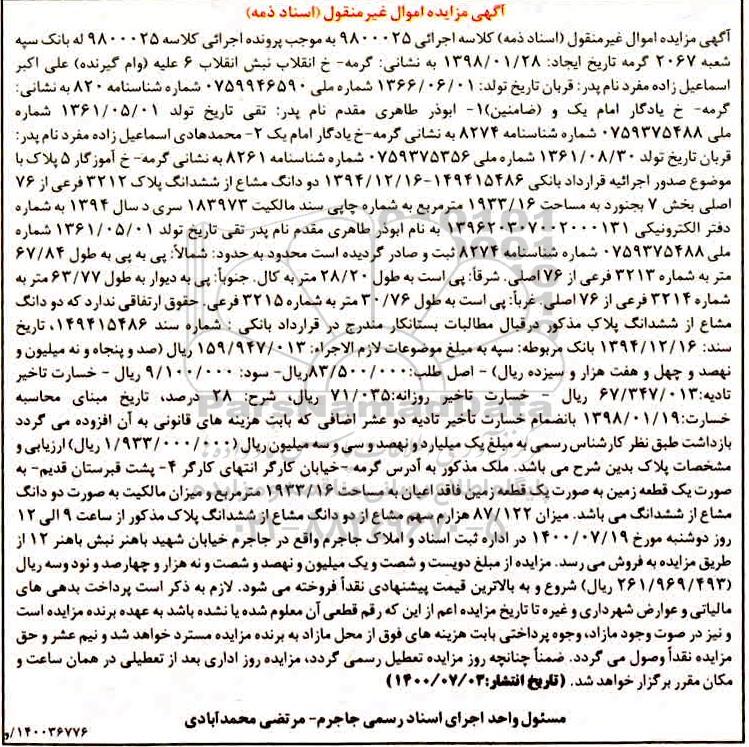 آگهی مزایده اموال غیر منقول (اسناد ذمه)
آگهی مزایده اموال غیرمنقول (اسناد ذمه) کلاسه اجرائی ۹۸۰۰۰۲۵ به موجب پرونده اجرائی کلاسه ۹۸۰۰۰۲۵ له بانک سپه
شعبه ۲۰۶۷ گرمه تاریخ ایجاد: ۱۳۹۸/۰۱/۲۸ به نشانی: گرمه- خ انقلاب نبش انقلاب ۶ علیه (وام گیرنده) علی اکبر
اسماعیل زاده مفرد نام پدر: قربان تاریخ تولد: ۱۳۶۶/۰۶/۰۱ شماره ملی ۰۷۵۹۹۴۶۵۹۰ شماره شناسنامه ۸۲۰ به نشانی:
گرمه- خ یادگار امام یک و (ضامنین)۱- ابوذر طاهری مقدم نام پدر: تقی تاریخ تولد ۱۳۶۱/۰۵/۰۱ شماره
ملی ۰۷۵۹۳۷۵۴۸۸ شماره شناسنامه ۸۲۷۴ به نشانی گرمه-خ یادگار امام یک ۲- محمدهادی اسماعیل زاده مفرد نام پدر:
قربان تاریخ تولد ۱۳۶۱/۰۸/۳۰ شماره ملی ۰۷۵۹۳۷۵۳۵۶ شماره شناسنامه ۸۲۶۱ به نشانی گرمه- خ آموزگار ۵ پلاک با
موضوع صدور اجرائیه قرارداد بانکی ۱۴۹۴۱۵۴۸۶-۱۳۹۴/۱۲/۱۶ دو دانگ مشاع از ششدانگ پلاک ۳۲۱۲ فرعی از ۷۶
اصلی بخش ۷ بجنورد به مساحت ۱۹۳۳/۱۶ مترمربع به شماره چاپی سند مالکیت ۱۸۳۹۷۳ سری د سال ۱۳۹۴ به شماره
دفتر الکترونیکی ۱۳۹۶۲۰۳۰۷۰۰۲۰۰۰۱۳۱ به نام ابوذر طاهری مقدم نام پدر تقی تاریخ تولد ۱۳۶۱/۰۵/۰۱ شماره
ملی ۰۷۵۹۳۷۵۴۸۸ شماره شناسنامه ۸۲۷۴ ثبت و صادر گردیده است محدود به حدود: شمالاً: پی به پی به طول ۶۷/۸۴
متر به شماره ۳۲۱۳ فرعی از ۷۶ اصلی. شرقاً: پی است به طول ۲۸/۲۰ متر به کال. جنوباً: پی به دیوار به طول ۶۳/۷۷ متر به
شماره ۳۲۱۴ فرعی از ۷۶ اصلی. غرباً: پی است به طول ۳۰/۷۶ متر به شماره ۳۲۱۵ فرعی. حقوق ارتفاقی ندارد که دو دانگ
مشاع از ششدانگ پلاک مذکور درقبال مطالبات بستانکار مندرج در قرارداد بانکی : شماره سند ۱۴۹۴۱۵۴۸۶، تاریخ
سند: ۱۳۹۴/۱۲/۱۶ بانک مربوطه: سپه به مبلغ موضوعات لازم الاجراء: ۱۵۹/۹۴۷/۰۱۳ ریال (صد و پنجاه و نه میلیون و
نهصد و چهل و هفت هزار و سیزده ریال) - اصل طلب: ۸۳/۵۰۰/۰۰۰ریال- سود: ۹/۱۰۰/۰۰۰ ریال - خسارت تاخیر
تادیه:۶۷/۳۴۷/۰۱۳ ریال - خسارت تاخیر روزانه:۷۱/۰۳۵ ریال، شرح: ۲۸ درصد، تاریخ مبنای محاسبه
خسارت:۱۳۹۸/۰۱/۱۹ بانضمام خسارت تأخیر تادیه دو عشر اضافی که بابت هزینه های قانونی به آن افزوده می گردد
بازداشت طبق نظر کارشناس رسمی به مبلغ یک میلیارد و نهصد و سی و سه میلیون ریال (۱/۹۳۳/۰۰۰/۰۰۰ ریال) ارزیابی و
مشخصات پلاک بدین شرح می باشد. ملک مذکور به آدرس گرمه -خیابان کارگر انتهای کارگر ۴- پشت قبرستان قدیم- به
صورت یک قطعه زمین به صورت یک قطعه زمین فاقد اعیان به مساحت ۱۹۳۳/۱۶ مترمربع و میزان مالکیت به صورت دو دانگ
مشاع از ششدانگ می باشد. میزان ۸۷/۱۲۲ هزارم سهم مشاع از دو دانگ مشاع از ششدانگ پلاک مذکور از ساعت ۹ الی ۱۲
روز دوشنبه مورخ ۱۴۰۰/۰۷/۱۹ در اداره ثبت اسناد و املاک جاجرم واقع در جاجرم خیابان شهید باهنر نبش باهنر ۱۲ از
طریق مزایده به فروش می رسد. مزایده از مبلغ دویست و شصت و یک میلیون و نهصد و شصت و نه هزار و چهارصد و نود وسه ریال
(۲۶۱/۹۶۹/۴۹۳ ریال) شروع و به بالاترین قیمت پیشنهادی نقداً فروخته می شود. لازم به ذکر است پرداخت بدهی های
مالیاتی و عوارض شهرداری و غیره تا تاریخ مزایده اعم از این که رقم قطعی آن معلوم شده یا نشده باشد به عهده برنده مزایده است
و نیز در صوت وجود مازاد، وجوه پرداختی بابت هزینه های فوق از محل مازاد به برنده مزایده مسترد خواهد شد و نیم عشر و حق
مزایده نقداً وصول می گردد. ضمناً چنانچه روز مزایده تعطیل رسمی گردد، مزایده روز اداری بعد از تعطیلی در همان ساعت و
مکان مقرر برگزار خواهد شد. (تاریخ انتشار:۱۴۰۰/۰۷/۰۳)
مسئول واحد اجرای اسناد رسمی جاجرم- مرتضی محمدآبادی
۱۴۰۰۳۶۷۷۶/و